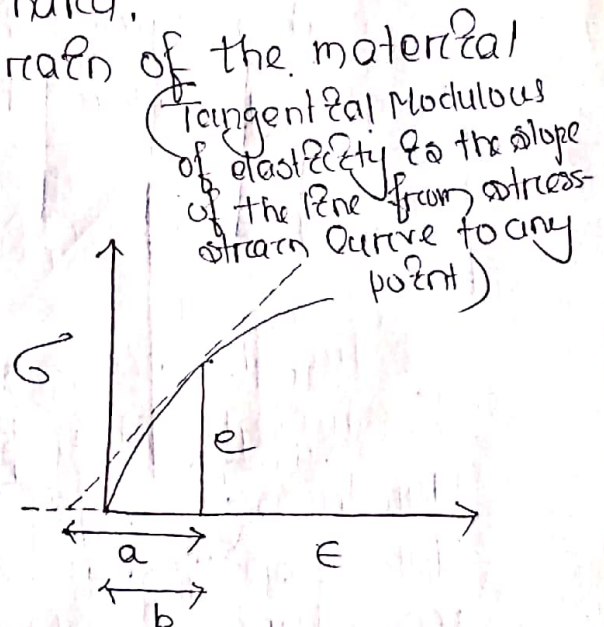 rain of the material
(Tangential Modulous
of elasticity is the slope
of the line from stress-
strain Curve to any
point)
σ
e
a
ϵ
b